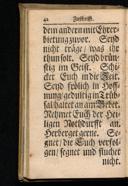 42 Zuschrifft.
dem andern mit Ehrer-
bietung zuvor. Seyd
nicht träge / was ihr
thun solt. Seyd brün-
stig im Geist. Schi-
cket Euch in die Zeit.
Seyd frölich in Hoff-
nung / gedultig in Trüb-
sal / haltet an am Gebet.
Nehmet Euch der Hei-
ligen Nothdurfft an.
Herberget gerne. Se-
gnet / die Euch verfol-
gen / segnet und fluchet
nicht.